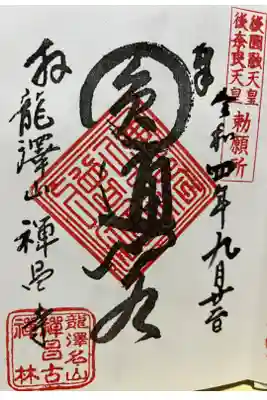 後圓融天皇
後奈良天皇
勅願所
令和四年九月廿
圓通
於龍澤山禪昌寺
龍澤名山
禪昌古
禪林